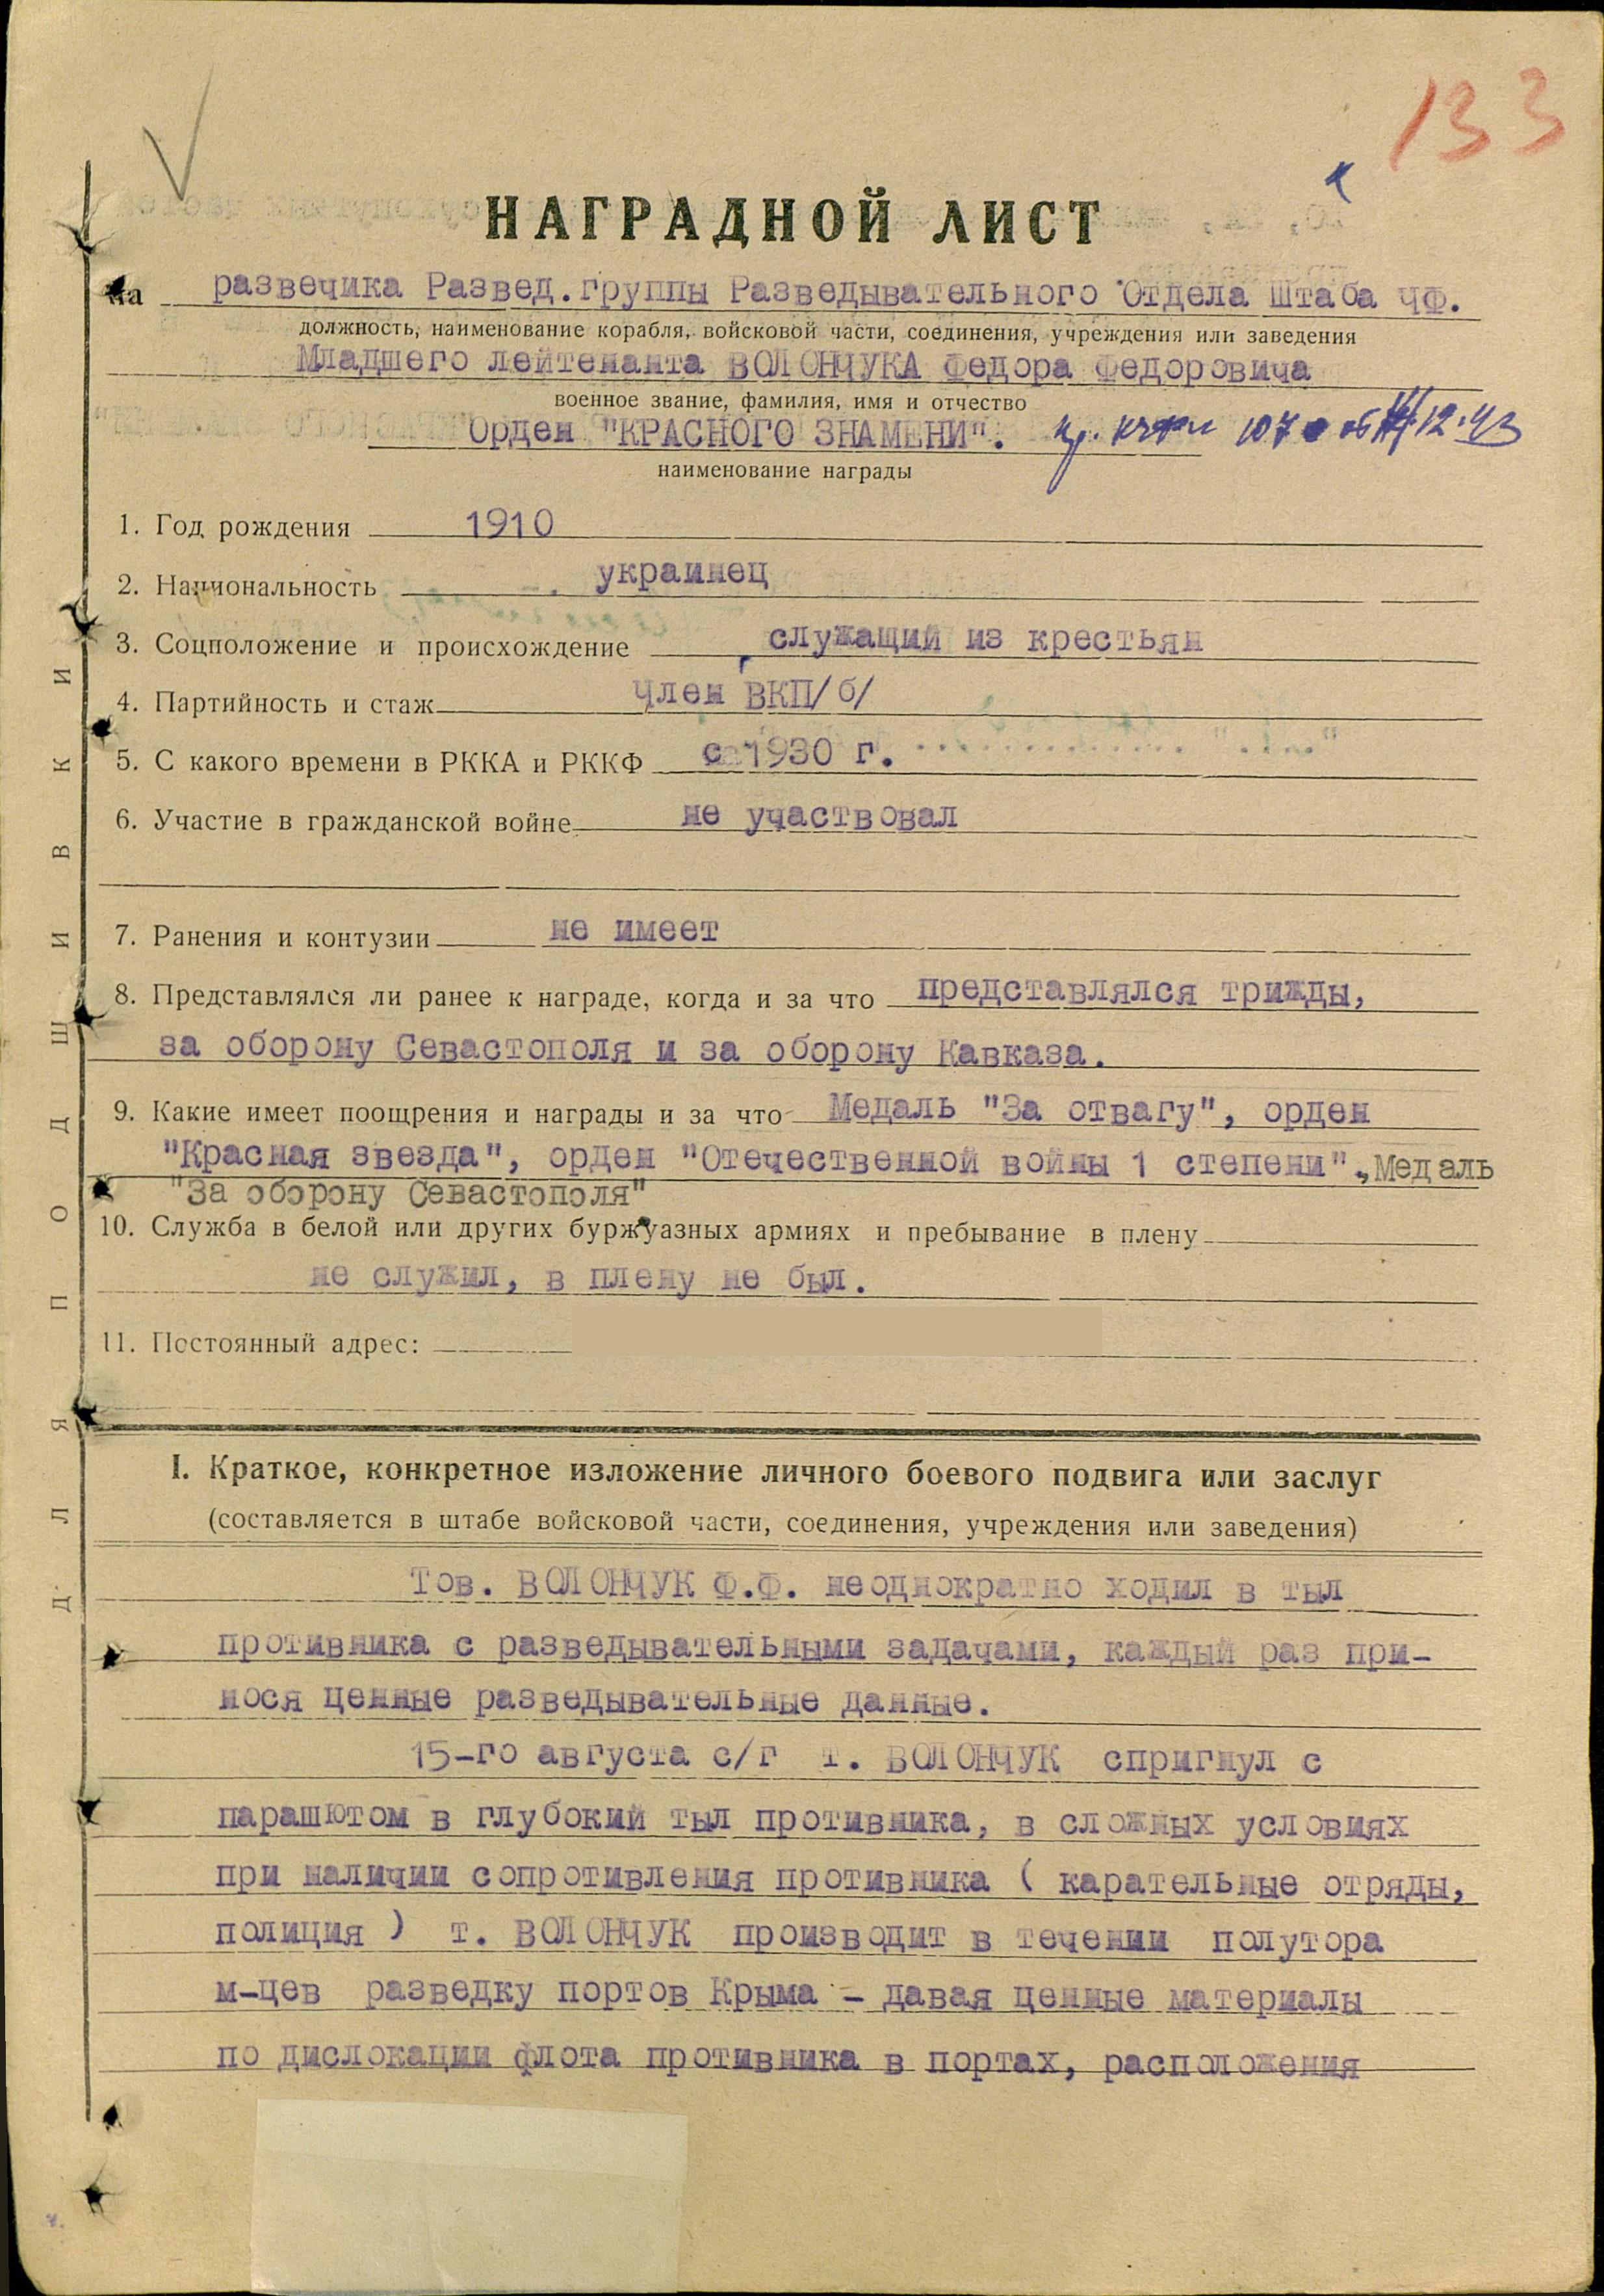 133
НАГРАДНОЙ ЛИСТ
на развечика Развед.группы Разведывательного Отдела Штаба ЧФ.
должность, наименование корабля, войсковой части, соединения, учреждения или заведения
Младшего лейтенанта ВОЛОНЧУКА Федора Федоровича
военное звание, фамилия, имя и отчество
Орден "КРАСНОГО ЗНАМЕНИ". пр. 107 12.43
наименование награды
1. Год рождения 1910
2. Национальность украинец
3. Соцположение и происхождение служащий из крестьян
4. Партийность и стаж Член ВКП/б/
5. С какого времени в РККА и РККФ с 1930 г.
6. Участие в гражданской войне не участвовал
7. Ранения и контузии не имеет
8. Представлялся ли ранее к награде, когда и за что представлялся трижды,
за оборону Севастополя и за оборону Кавказа.
9. Какие имеет поощрения и награды и за что Медаль "За отвагу", орден
"Красная звезда", орден "Отечественной войны 1 степени"., Медаль
"За оборону Севастополя"
10. Служба в белой или других буржуазных армиях и пребывание в плену
не служил, в плену не был.
11. Постоянный адрес:
I. Краткое, конкретное изложение личного боевого подвига или заслуг
(составляется в штабе войсковой части, соединения, учреждения или заведения)
Тов. ВОЛОНЧУК Ф.Ф. неоднократно ходил в тыл
противника с разведывательными задачами, каждый раз при-
нося ценные разведывательные данные.
15-го августа с/г т. ВОЛОНЧУК спригнул с
парашютом в глубокий тыл противника, в сложных условиях
при наличии сопротивления противника ( карательные отряды,
полиция ) т. ВОЛОНЧУК производит в течении полутора
м-цев разведку портов Крыма - давая ценные материалы
по дислокации флота противника в портах, расположения
ДЛЯ ПОДШИВКИ